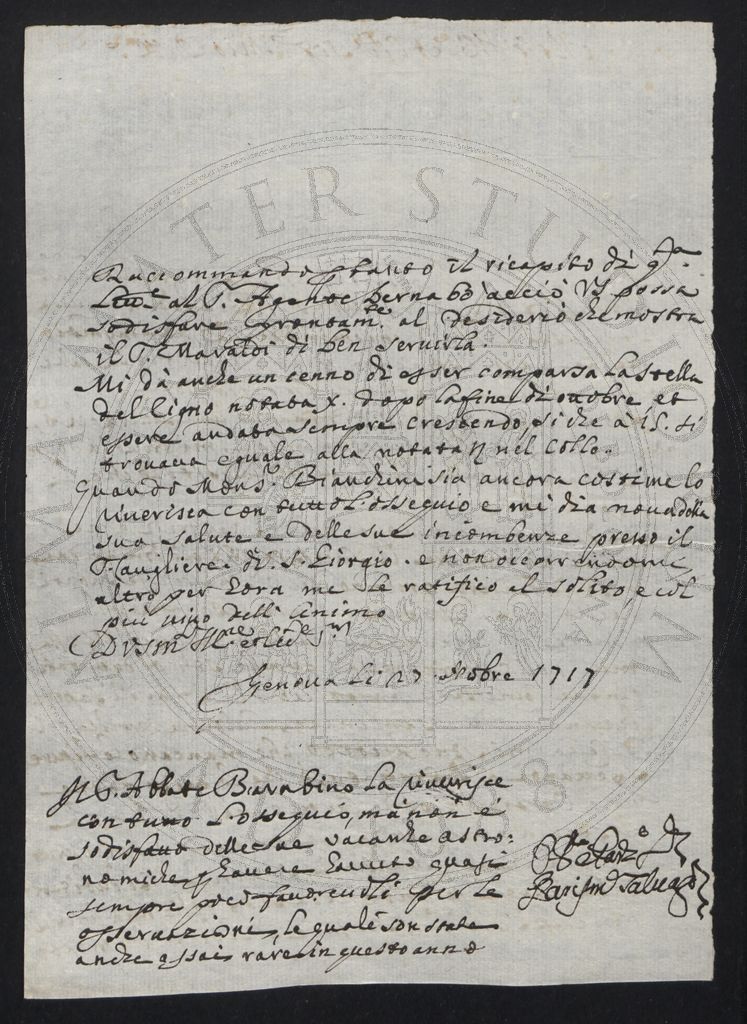 Raccommando ptanto il ricapito di qta
al S. Agente Bernabò acciò VS possa
sodisfare prontamte al desiderio che mostra
il S. Maraldi di ben servirla.
Mi dà anche un cenno di esser comparsa la stella
del Cigno notata χ. dopo la fine di ottobre et
essere andata sempre crescendo, si che à 15. si
trovava eguale alla notata η nel collo.
Quando Monsr. Bianchini sia ancora costì me lo
riverisca con tutto l'ossequio e mi dia nova della
sua salute e delle sue incombenze presso il
Cavgliere di S. Giorgio. e non occorrendomi
altro per hora me le ratifico al solito, e col
più vivo dell'animo
Di VS
Genova Li 27 1717
Il S. Abbate Barabino la riverisce
con tutto l'ossequio, mà non è
sodisfatto delle sue vacanze astro:
nomiche p havere havuto quasi
sempre poco favorevoli per le
osservazioni, le quali son state
anche assai rare in questo anno
Salvago
ALMA MATER STUDIORUM